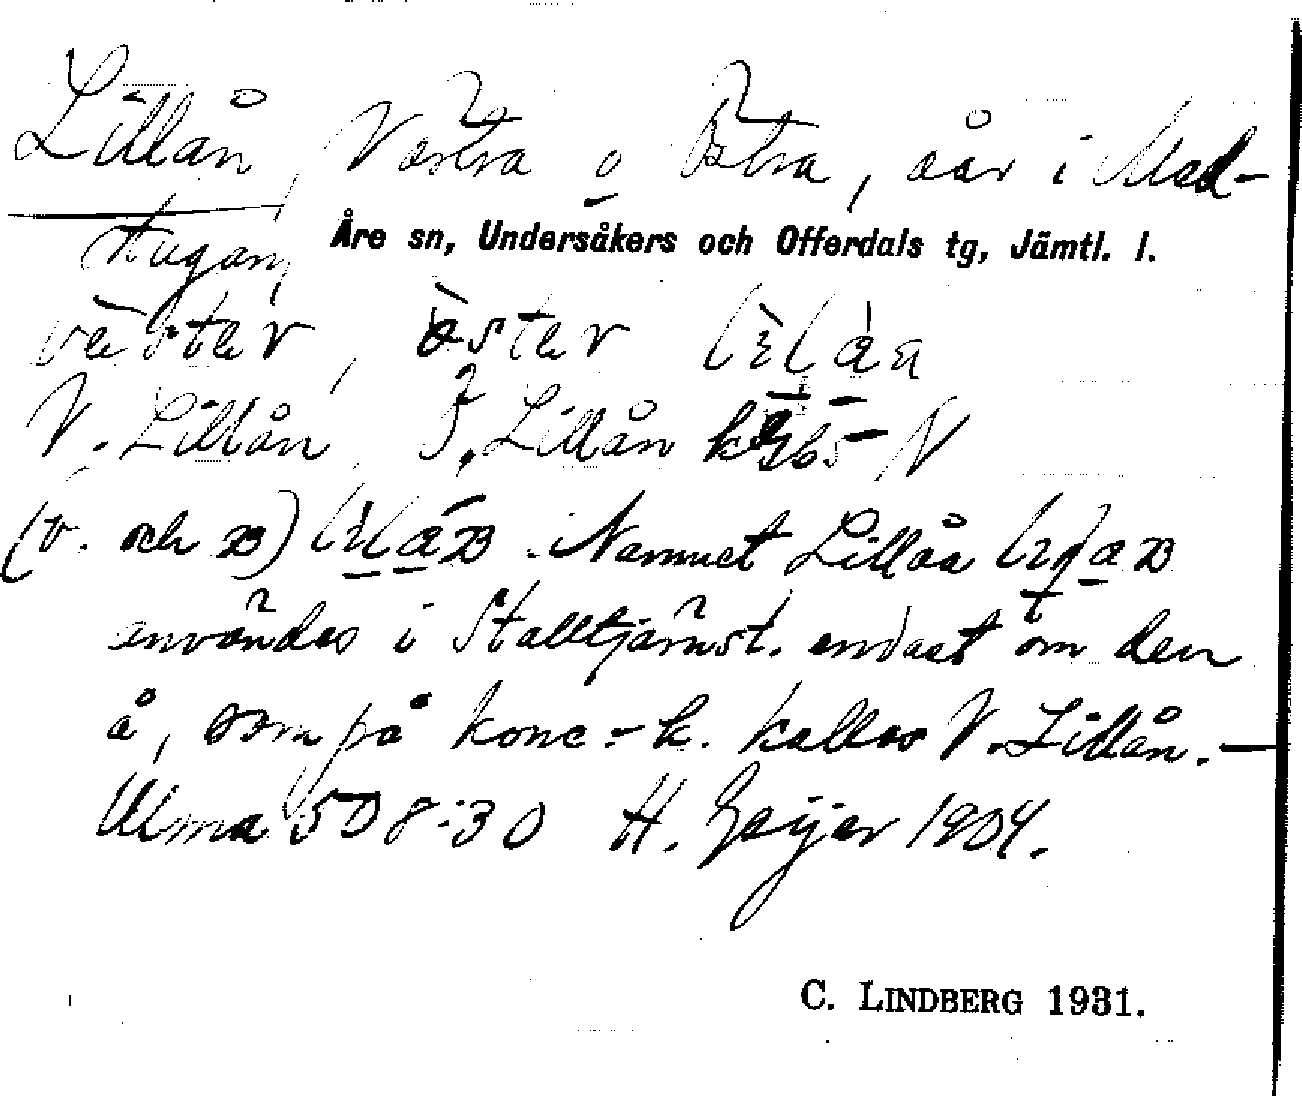 Lillån, Västra o Östra, åar i Med-
stugan,
Åre sn, Undersåkers och Offerdals tg, Jämtl. l.
vèster, òster
V. Lillån, Ö. Lillån k 965 N
(v. och ö) Namnet Lillåa
användes i Stalltjärnst. endast om den
å, som på konc-k. kallas V. Lillån. —
Ulma 508:30 H. Geijer 1904.
C. LINDBERG 1931.